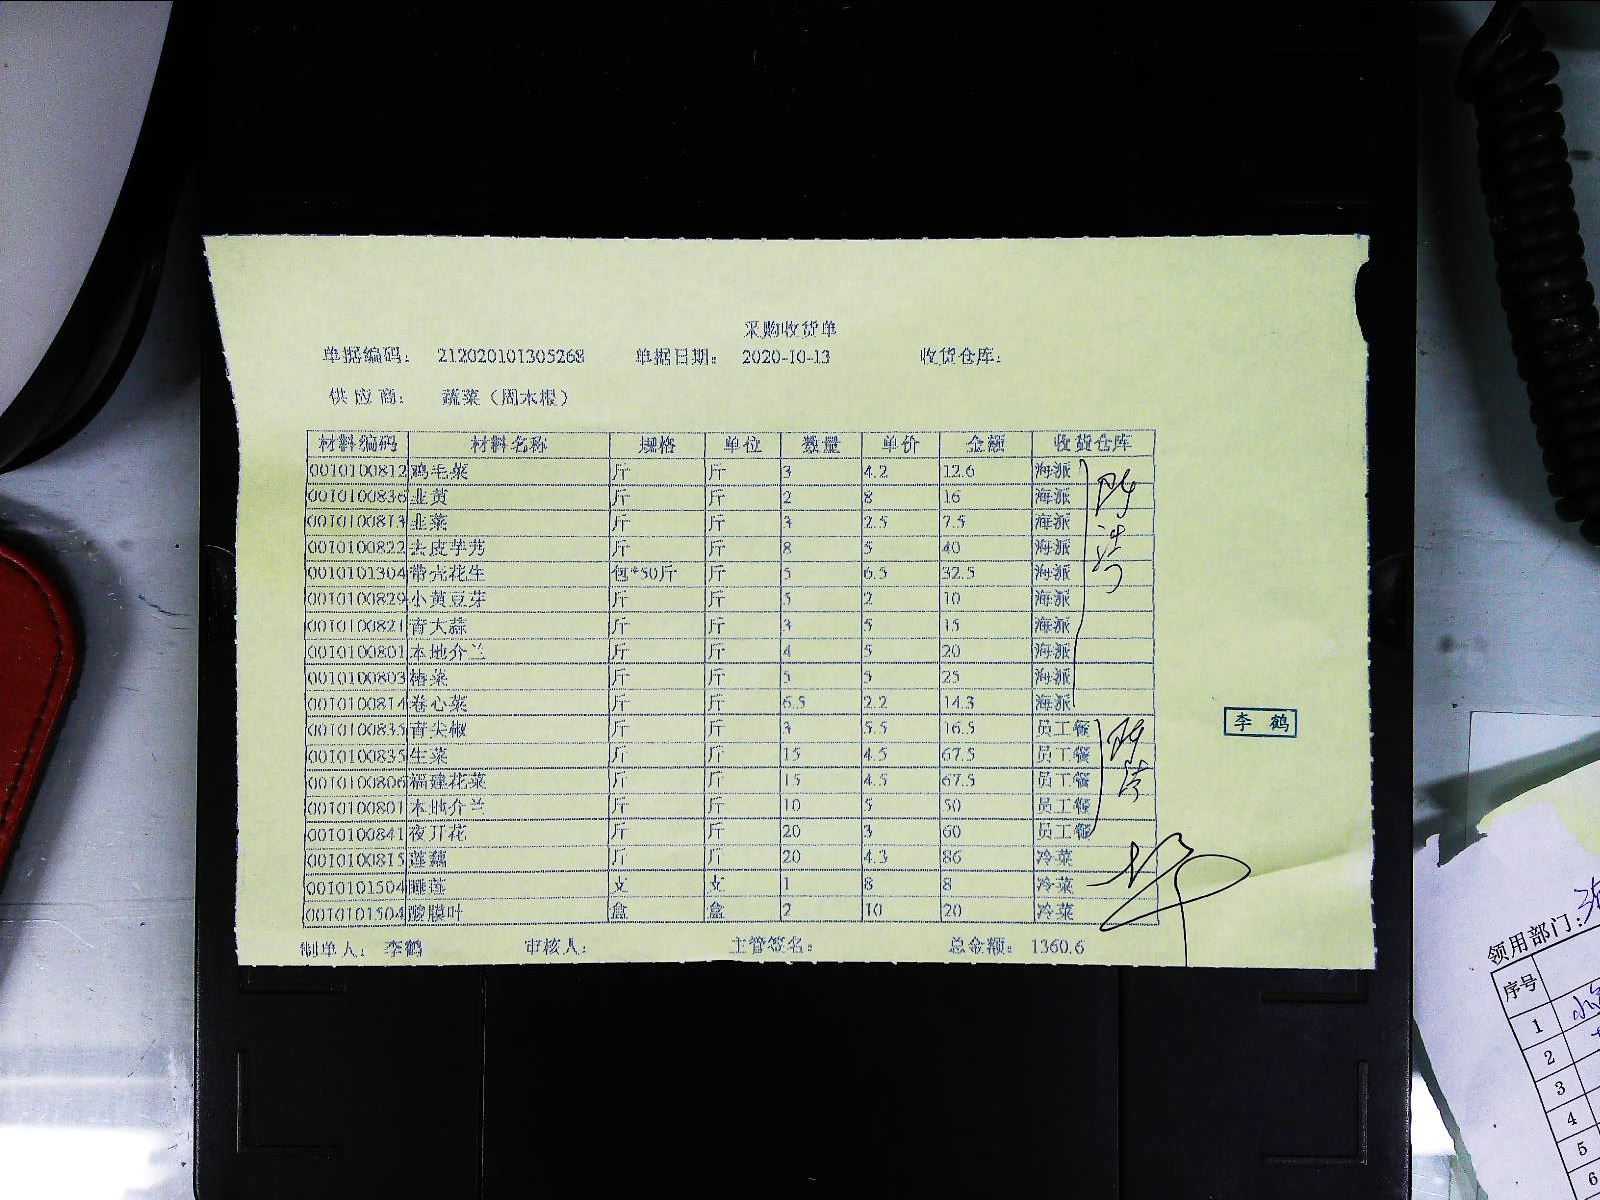 采购收货单
单据编码： 212020101305268 单据日期： 2020-10-13 收货仓库：
供应商： 蔬菜（周木根）
材料编码 材料名称 规格 单位 数量 单价 金额 收货仓库
0010100812 鸡毛菜 斤 斤 3 4.2 12.6 海派
0010100836 韭黄 斤 斤 2 8 16 海派
0010100813 韭菜 斤 斤 3 2.5 7.5 海派
0010100822 去皮芋艿 斤 斤 8 5 40 海派
0010101304 带壳花生 包*50斤 斤 5 6.5 32.5 海派
0010100829 小黄豆芽 斤 斤 5 2 10 海派
0010100821 青大蒜 斤 斤 3 5 15 海派
0010100801 本地介兰 斤 斤 4 5 20 海派
0010100803 菜 斤 斤 5 5 25 海派
0010100814 卷心菜 斤 斤 6.5 2.2 14.3 海派
0010100835 青尖椒 斤 斤 3 5.5 16.5 员工餐
0010100835 生菜 斤 斤 15 4.5 67.5 员工餐
0010100806 福建花菜 斤 斤 15 4.5 67.5 员工餐
0010100801 本地介兰 斤 斤 10 5 50 员工餐
0010100841 夜开花 斤 斤 20 3 60 员工餐
0010100815 莲藕 斤 斤 20 4.3 86 冷菜
0010101504 睡莲 支 支 1 8 8 冷菜
0010101504 酸膜叶 盒 盒 2 10 20 冷菜
制单人： 李鹤 审核人： 主管签名： 总金额： 1360.6
李鹤
领用部门：
序号
1
2
3
4
5
6